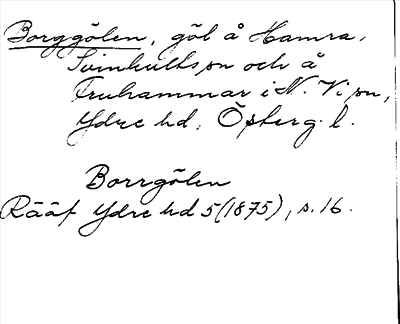 Borggölen, göl å Hamra,
Svinhults sn och å
Fruhammar i N. Vi sn,
Ydre hd, Österg. l.
Borrgölen
Rääf Ydre hd 5 (1875), s. 16.